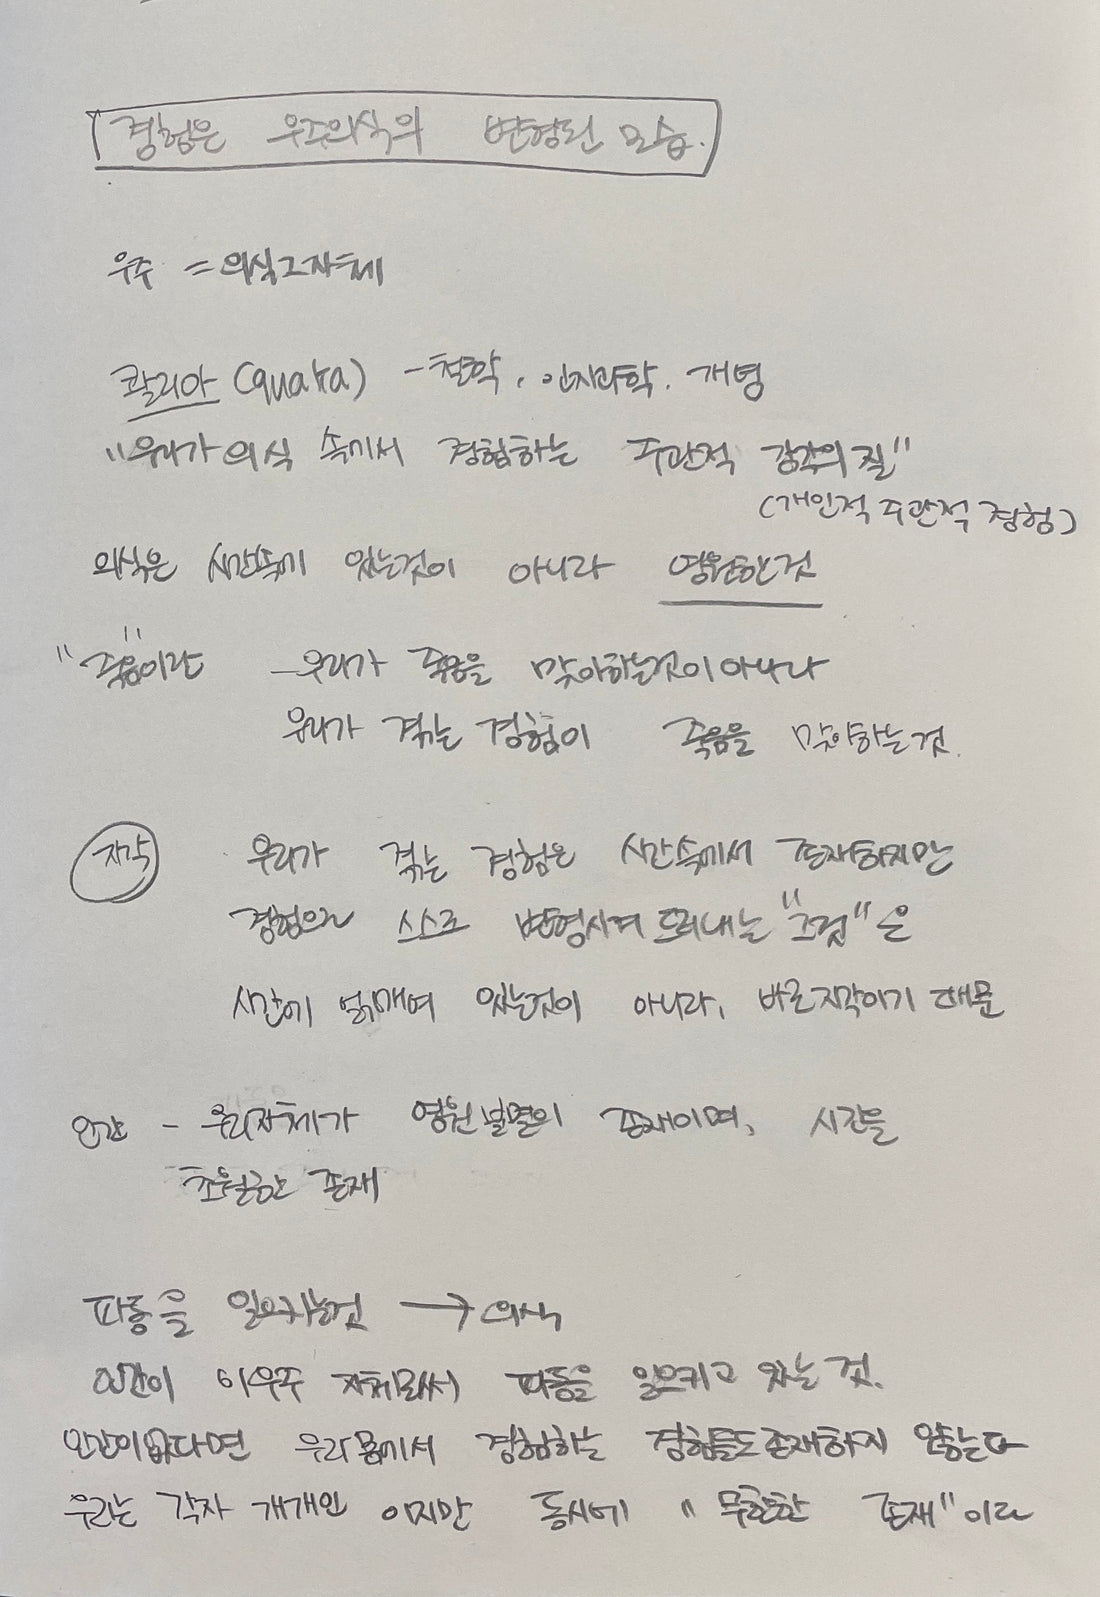 경험은 우주의식의 변형된 모습.
우주 = 의식그자체
콸리아 (quaria) - 철학, 인지과학, 개념
"우리가 의식 속에서 경험하는 주관적 감각의 질"
(개인적 주관적 경험)
의식은 시간속에 있는것이 아니라 영원한것
"죽음"이란 - 우리가 죽음을 맞이하는것이 아니라
우리가 겪는 경험이 죽음을 맞이하는것.
자각 우리가 겪는 경험은 시간속에서 존재하지만
경험으로 스스로 변형시켜 드러내는 "그것"은
시간에 얽매여 있는것이 아니라, 바로 자각이기 때문
인간 - 우리자체가 영원불멸의 존재이며, 시간을
초월한 존재
파동을 일으키는것 → 의식
인간이 이우주 자체로서 파동을 일으키고 있는 것.
인간이 없다면 우리 몸에서 경험하는 경험들도 존재하지 않는다
우리는 각자 개개인 이지만 동시에 "무한한 존재"이다